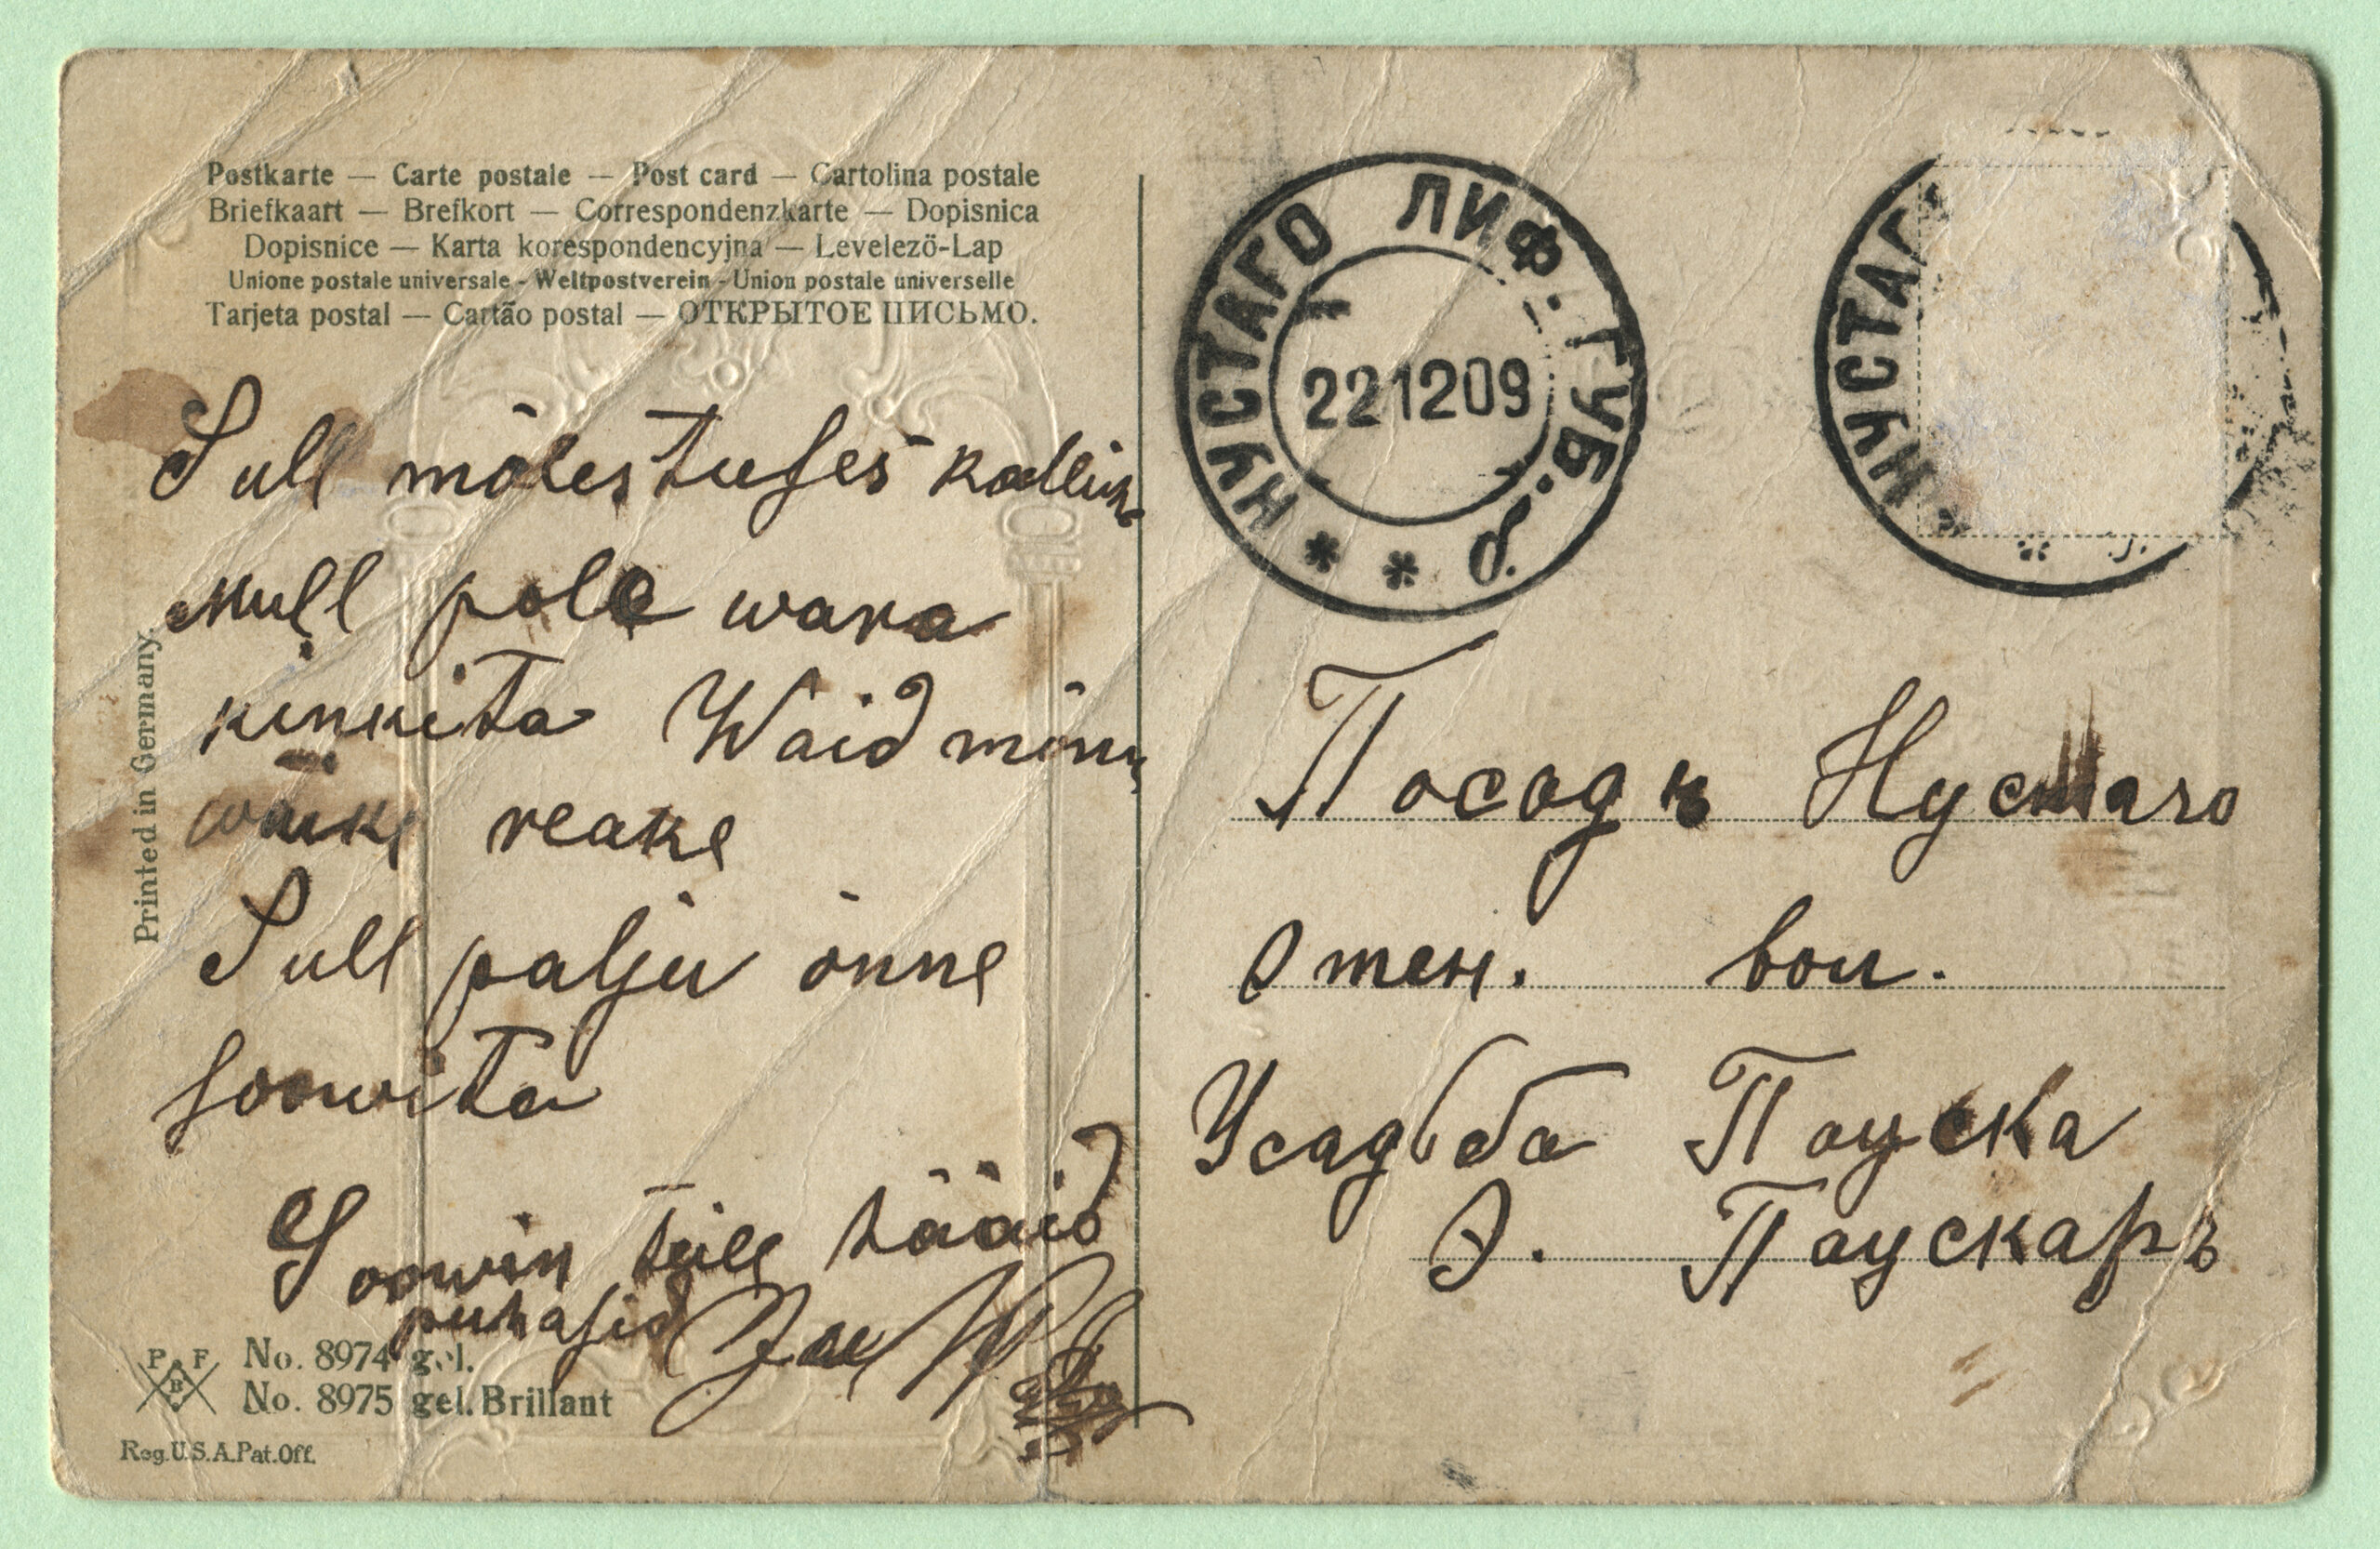 Postkarte — Carte postale — Post card — Cartolina postale
Briefkaart — Brefkort — Correspondenzkarte — Dopisnica
Dopisnice — Karta korespondencyjna — Levelező-Lap
Unione postale universale - Weltpostverein - Union postale universelle
Tarjeta postal — Cartão postal — ОТКРЫТОЕ ПИСЬМО.
Sull mõlestuses kallim
Mull pole wara
kinkita Waid mõni
wäike reake
Sull palju õnne
soowita
Soowin teile hääid
puhasid
Printed in Germany.
P F B
No. 8974 gel.
No. 8975 gel. Brillant
Reg. U.S.A. Pat. Off.
НУСТАГО ЛИФ. ГУБ.
221209
НУСТАГ
Посадъ Нустаго
Отен. вол.
Усадьба Пауска
Э. Паускаръ